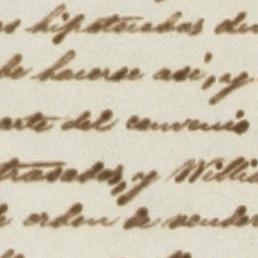 s hipotecadas du
be hacerse así, y
arte del convenio
trasadas, y Willia
e orden de vender